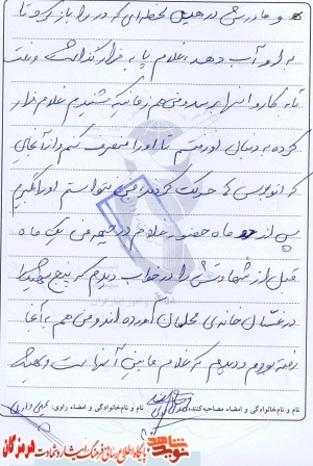 و مادرش در همین لحظه‌ای که در را باز کرد تا
به او آب دهد، غلام پا به فرار گذاشت و رفت
تا به کاروانها برسد و من هم زمانیکه شنیدم غلام فرار
کرده به دنبال او رفتم تا او را منصرف کنم از آنجایی
که اتوبوس‌ها حرکت کردند من نتوانستم او را بگیرم
پس از دو ماه حضور غلام در جبهه من یک ماه
قبل از شهادتش را در خواب دیدم که پنج شهید را
در غسال خانه‌ی محله‌مان آورده‌اند و من هم به آنجا
رفته بودم و دیدم که غلام مابین آنهاست و شهید
نام و نام‌خانوادگی و امضاء مصاحبه‌کننده: نام و نام‌خانوادگی و امضاء راوی:
نوید شاهد پایگاه اطلاع رسانی فرهنگ ایثار و شهادت هرمزگان